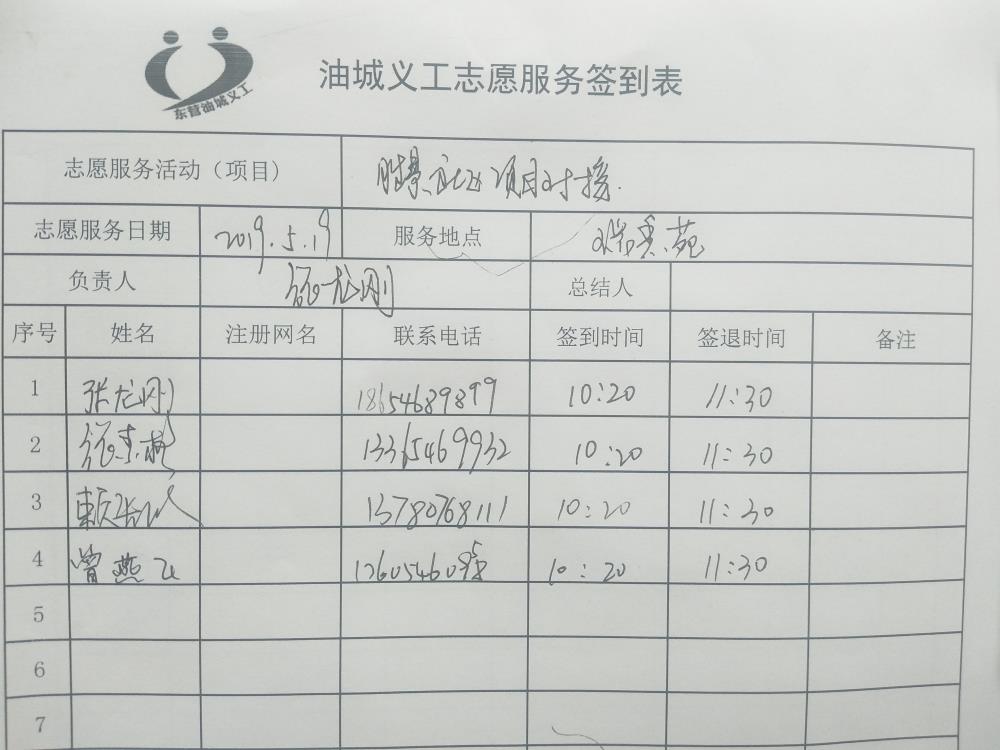 东营油城义工
油城义工志愿服务签到表
志愿服务活动（项目） 胜景社区项目对接.
志愿服务日期 2019.5.19 服务地点 瑞景苑
负责人 龙刚 总结人
序号 姓名 注册网名 联系电话 签到时间 签退时间 备注
1 张龙刚 18654689899 10:20 11:30
2 13365469932 10:20 11:30
3 13780768111 10:20 11:30
4 曾燕飞 10:20 11:30
5
6
7